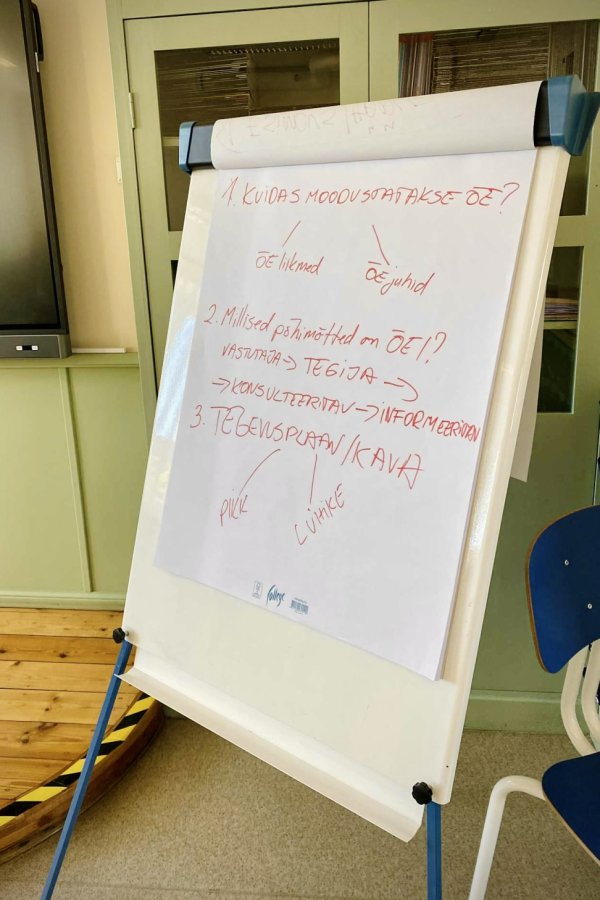 1. KUIDAS MOODUSTATAKSE ÕE?
ÕE liikmed
ÕE juhid
2. Millised põhimõtted on ÕEl?
VASTUTAJA → TEGIJA →
→ KONSULTEERITAV → INFORMEERITAV
3. TEGEVUSPLAAN/KAVA
PIKK
LÜHIKE
College